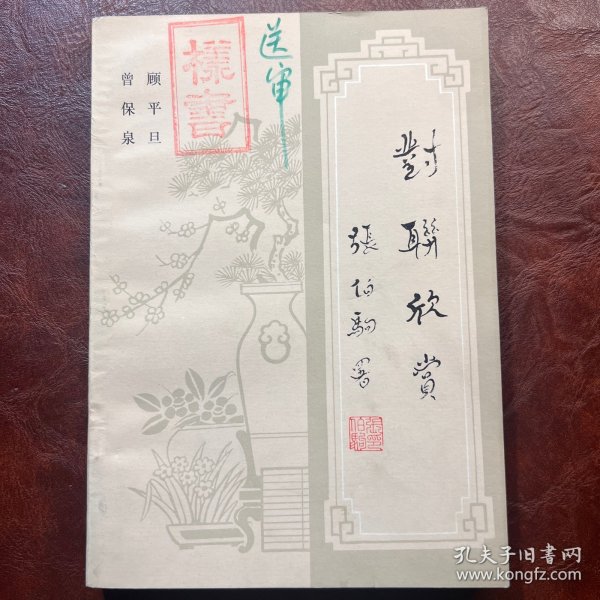 對聯欣賞
張伯駒署
張伯駒
送审
樣書
顾平旦
曾保泉
孔夫子旧书网
www.kongfz.com